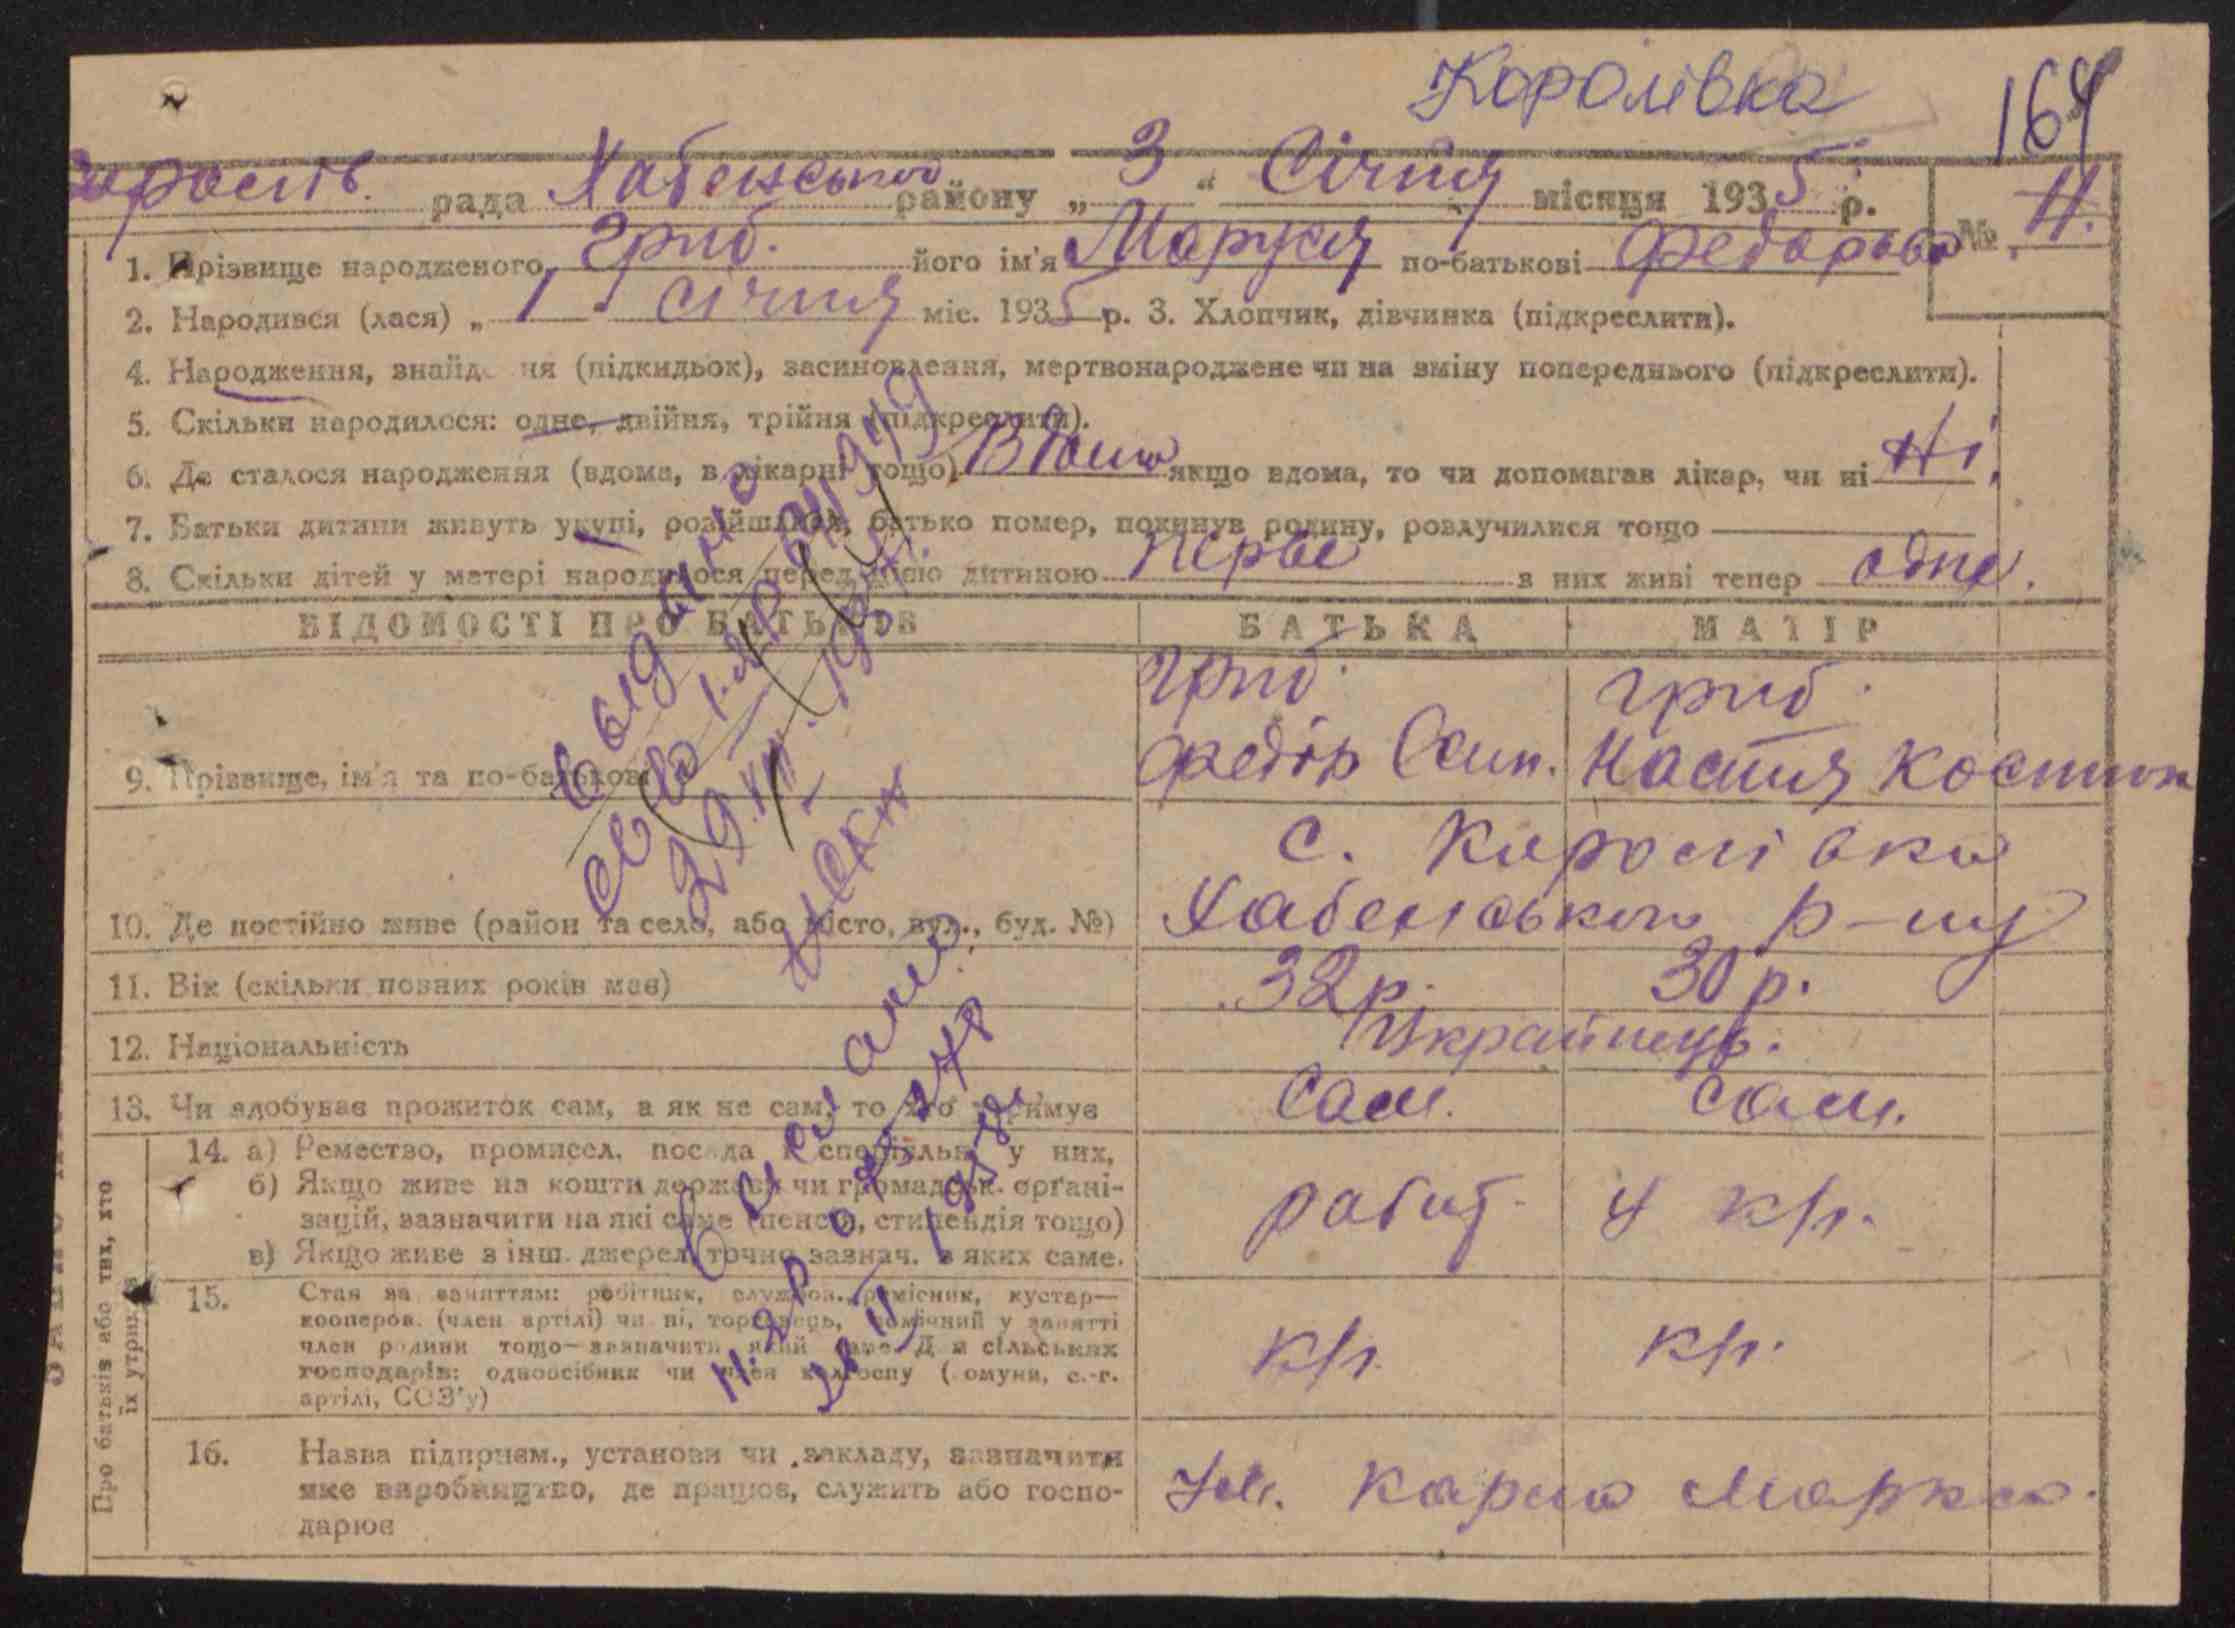 Королівка
164
рада Хабенського району „ 3 “ Січня місяця 1935 р.
№ 4.
1. Прізвище народженого Гриб. його ім'я Маруся по-батькові Федорова
2. Народився (лася) „ 1 січня міс. 1935 р. 3. Хлопчик, дівчинка (підкреслити).
4. Народження, знайд ня (підкидьок), засиновлення, мертвонароджене чи на зміну попереднього (підкреслити).
5. Скільки народилося: одне, двійня, трійня (підкреслити).
6. Де сталося народження (вдома, в лікарні тощо) Вдома якщо вдома, то чи допомагав лікар, чи ні Ні.
7. Батьки дитини живуть укупі, розійшлися, батько помер, покинув родину, розлучилися тощо
8. Скільки дітей у матері народилося перед цією дитиною перве з них живі тепер одне.
ВІДОМОСТІ ПРО БАТЬКІВ
БАТЬКА
МАТІР
Гриб.
Гриб.
9. Прізвище, ім'я та по-батькові
Федір Сам.
Настя
с. Королівка
10. Де постійно живе (район та село, або місто, вул., буд. №)
Хабенського р-ну
11. Вік (скільки повних років має)
32 р.
30 р.
12. Національність
Українець.
13. Чи здобуває прожиток сам, а як не сам, то хто утримує
Сам.
Сам.
14. а) Ремество, промисел, посада й спеціяльн. у них,
б) Якщо живе на кошти держави чи громадськ. орґані-
зацій, зазначити на які саме (пенсія, стипендія тощо)
в) Якщо живе з інш. джерел, точно зазнач. з яких саме.
работ. у к/г.
15. Стан за заняттям: робітник, службов., ремісник, кустар—
кооперов. (член артілі) чи ні, торговець, помічний у занятті
член родини тощо—зазначити який саме. Для сільських
господарів: одноосібник чи член колгоспу (комуни, с.-г.
артілі, СОЗ'у)
к/г.
к/г.
16. Назва підприєм., установи чи закладу, зазначити
яке виробництво, де працює, служить або госпо-
дарює
Ім. Карла Маркса.
Про батьків або тих, хто
їх утримує
выдано
29.VIII.